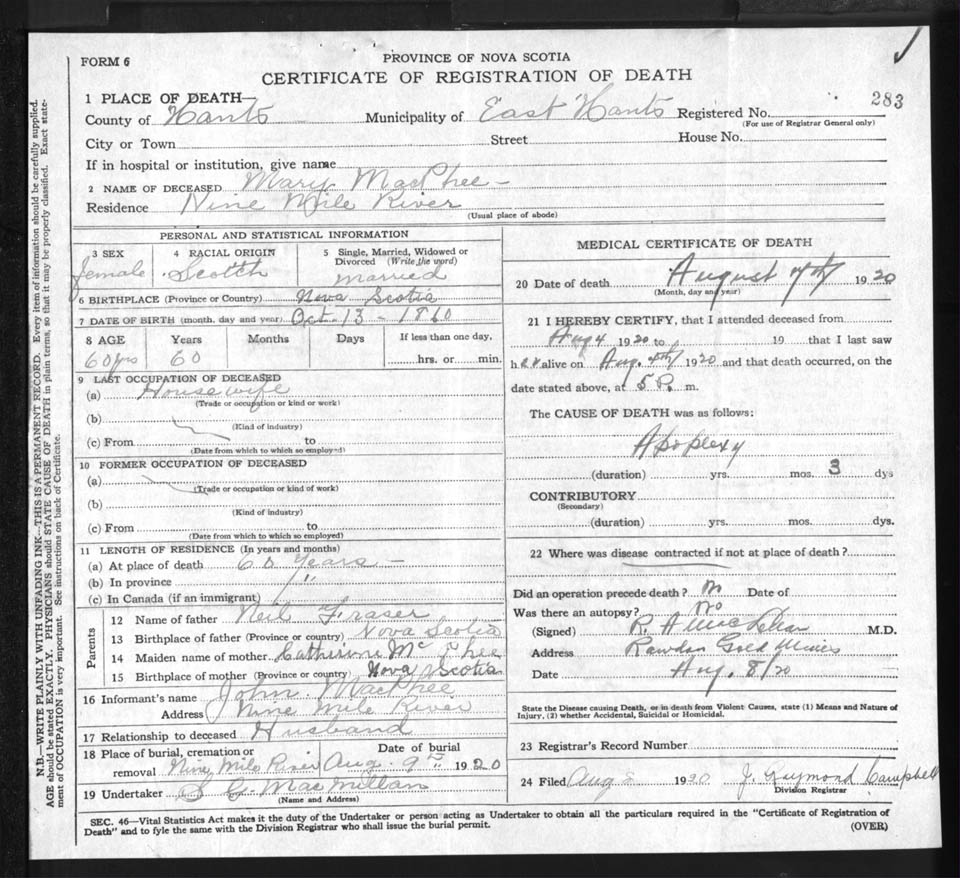 FORM 6
PROVINCE OF NOVA SCOTIA
CERTIFICATE OF REGISTRATION OF DEATH
283
1 PLACE OF DEATH—
County of Hants Municipality of East Hants Registered No.
(For use of Registrar General only)
City or Town Street House No.
If in hospital or institution, give name
2 NAME OF DECEASED Mary MacPhee
Residence Nine Mile River
(Usual place of abode)
PERSONAL AND STATISTICAL INFORMATION
3 SEX 4 RACIAL ORIGIN 5 Single, Married, Widowed or
Divorced (Write the word)
female Scotch married
6 BIRTHPLACE (Province or Country) Nova Scotia
7 DATE OF BIRTH (month, day and year) Oct 13 - 1860
8 AGE Years Months Days If less than one day,
60 yrs 60 hrs. or min.
9 LAST OCCUPATION OF DECEASED
(a) Housewife
(Trade or occupation or kind or work)
(b)
(Kind of industry)
(c) From to
(Date from which to which so employed)
10 FORMER OCCUPATION OF DECEASED
(a)
(Trade or occupation or kind of work)
(b)
(Kind of industry)
(c) From to
(Date from which to which so employed)
11 LENGTH OF RESIDENCE (In years and months)
(a) At place of death 60 Years -
(b) In province "
(c) In Canada (if an immigrant)
Parents
12 Name of father Neil Fraser
13 Birthplace of father (Province or country) Nova Scotia
14 Maiden name of mother Catherine McPhee
15 Birthplace of mother (Province or country) Nova Scotia
16 Informant's name John MacPhee
Address Nine Mile River
17 Relationship to deceased Husband
18 Place of burial, cremation or Date of burial
removal Nine Mile River Aug. 9th 1920
19 Undertaker MacMillan
(Name and Address)
MEDICAL CERTIFICATE OF DEATH
20 Date of death August 4th 1920
(Month, day and year)
21 I HEREBY CERTIFY, that I attended deceased from
Aug 4 1920 to 19 that I last saw
her alive on Aug. 4th 1920 and that death occurred, on the
date stated above, at 5 P. m.
The CAUSE OF DEATH was as follows:
Apoplexy
(duration) yrs. mos. 3 dys
CONTRIBUTORY
(Secondary)
(duration) yrs. mos. dys.
22 Where was disease contracted if not at place of death?
Did an operation precede death? No Date of
Was there an autopsy? No
(Signed) R. A. MacLellan M.D.
Address Rawdon Gold Mines
Date Aug. 8/20
State the Disease causing Death, or in death from Violent Causes, state (1) Means and Nature of
Injury, (2) whether Accidental, Suicidal or Homicidal.
23 Registrar's Record Number
24 Filed Aug 8 1920 J. Raymond Campbell
Division Registrar
SEC. 46—Vital Statistics Act makes it the duty of the Undertaker or person acting as Undertaker to obtain all the particulars required in the "Certificate of Registration of
Death" and to fyle the same with the Division Registrar who shall issue the burial permit. (OVER)
N.B.—WRITE PLAINLY WITH UNFADING INK—THIS IS A PERMANENT RECORD. Every item of information should be carefully supplied.
AGE should be stated EXACTLY. PHYSICIANS should STATE CAUSE OF DEATH in plain terms, so that it may be properly classified. Exact state-
ment of OCCUPATION is very important. See instructions on back of Certificate.